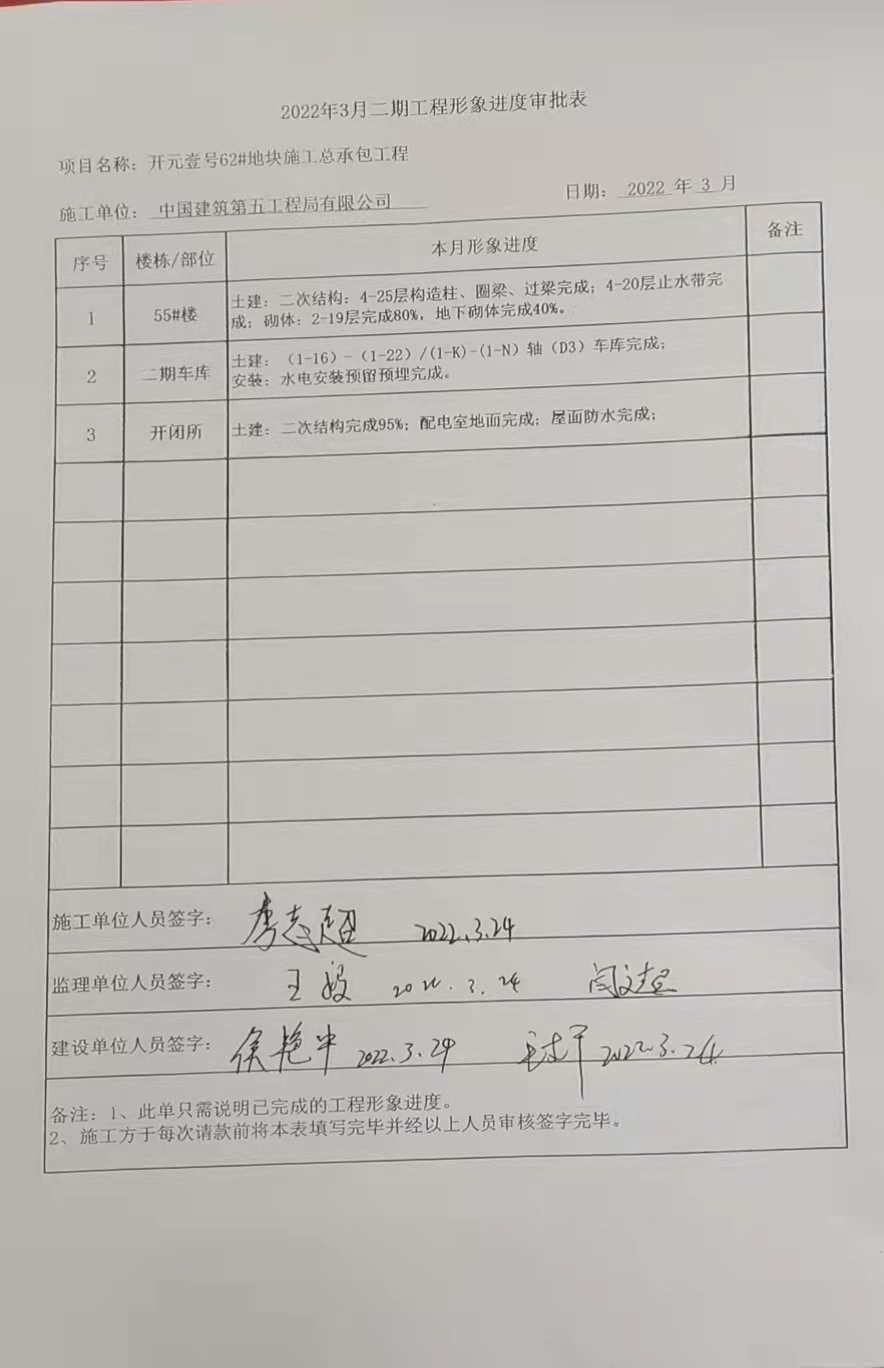 2022年3月二期工程形象进度审批表
项目名称：开元壹号62#地块施工总承包工程
施工单位：中国建筑第五工程局有限公司 日期：2022 年 3 月
序号 楼栋/部位 本月形象进度 备注
1 55#楼 土建：二次结构：4-25层构造柱、圈梁、过梁完成；4-20层止水带完
成；砌体：2-19层完成80%，地下砌体完成40%。
2 二期车库 土建：（1-16）-（1-22）/(1-K)-(1-N）轴（D3）车库完成；
安装：水电安装预留预埋完成。
3 开闭所 土建：二次结构完成95%；配电室地面完成；屋面防水完成；
施工单位人员签字： 李志超 2022.3.24
监理单位人员签字： 王 2022.3.24
建设单位人员签字： 侯艳 2022.3.24 2022.3.24
备注：1、此单只需说明已完成的工程形象进度。
2、施工方于每次请款前将本表填写完毕并经以上人员审核签字完毕。